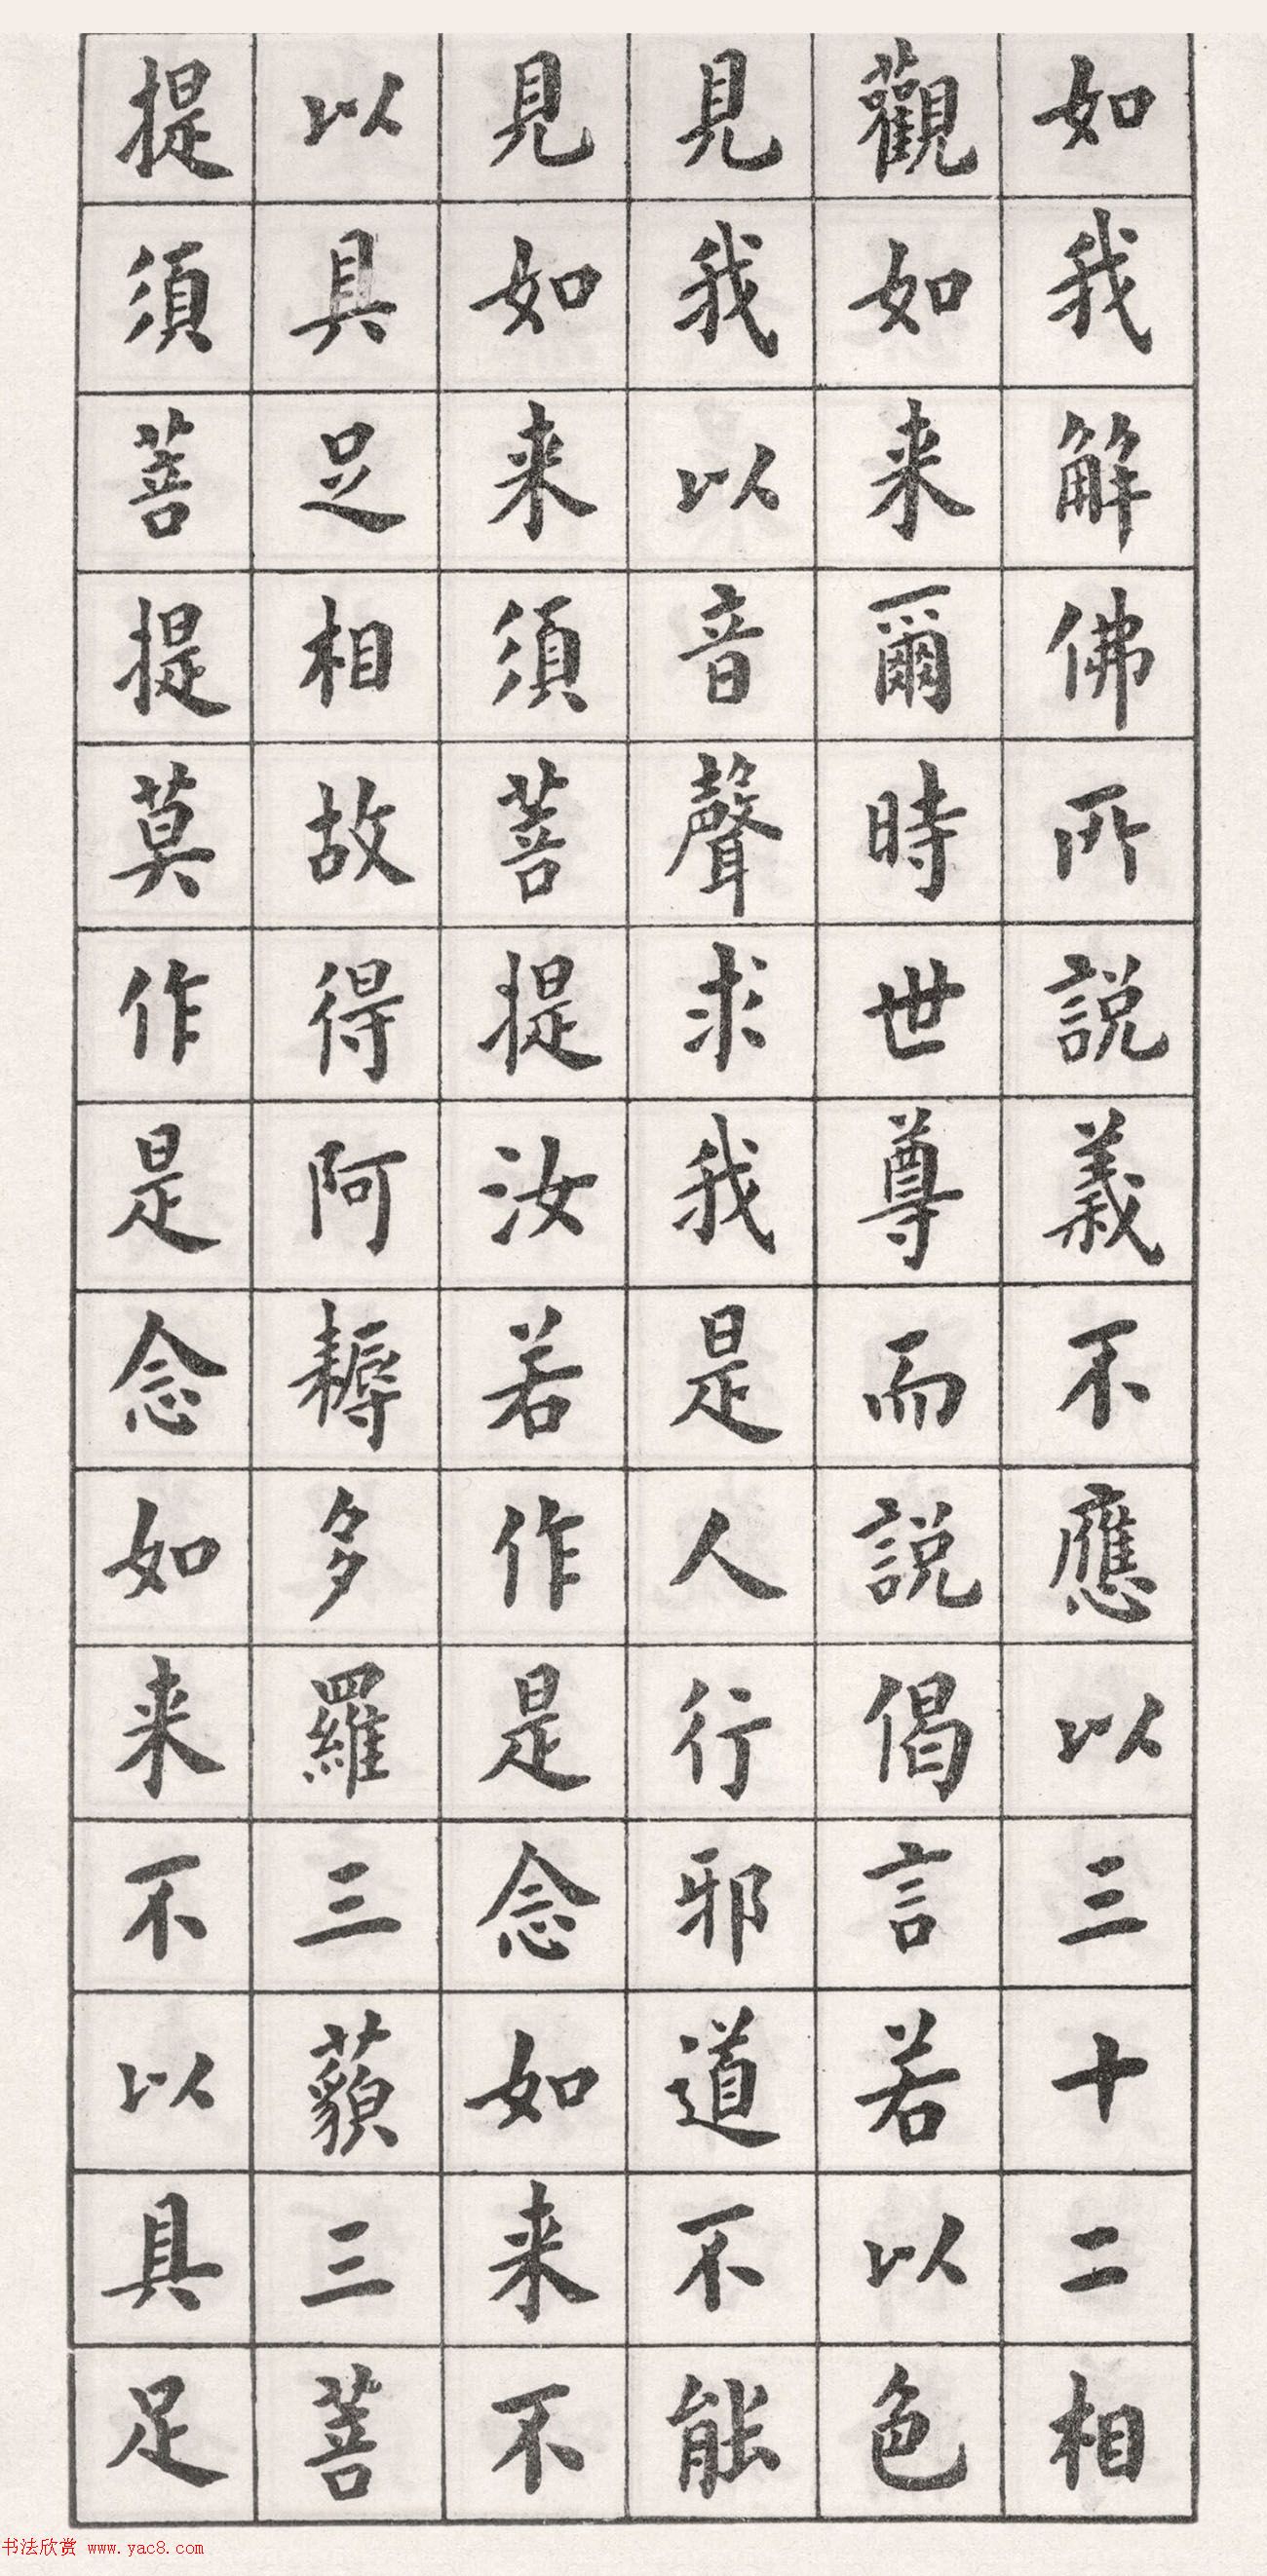 如我解佛所説義不應以三十二相
觀如来爾時世尊而説偈言若以色
見我以音聲求我是人行邪道不能
見如来須菩提汝若作是念如来不
以具足相故得阿耨多羅三藐三菩
提須菩提莫作是念如来不以具足
书法欣赏 www.yac8.com